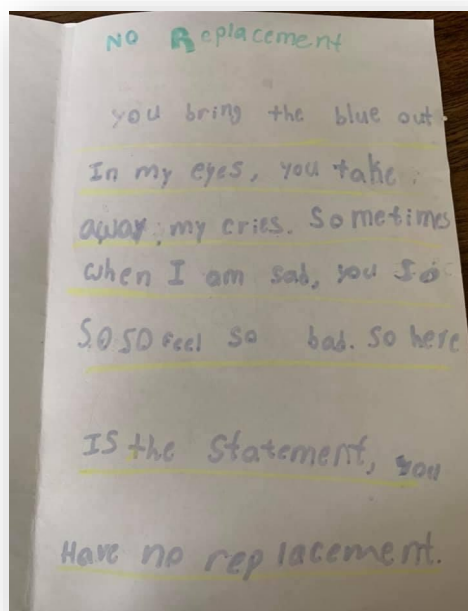 NO Replacement
you bring the blue out
In my eyes, you take
away, my cries. Sometimes
when I am sad, you so
SO SO Feel so bad. So here
IS the Statement, you
Have no replacement.